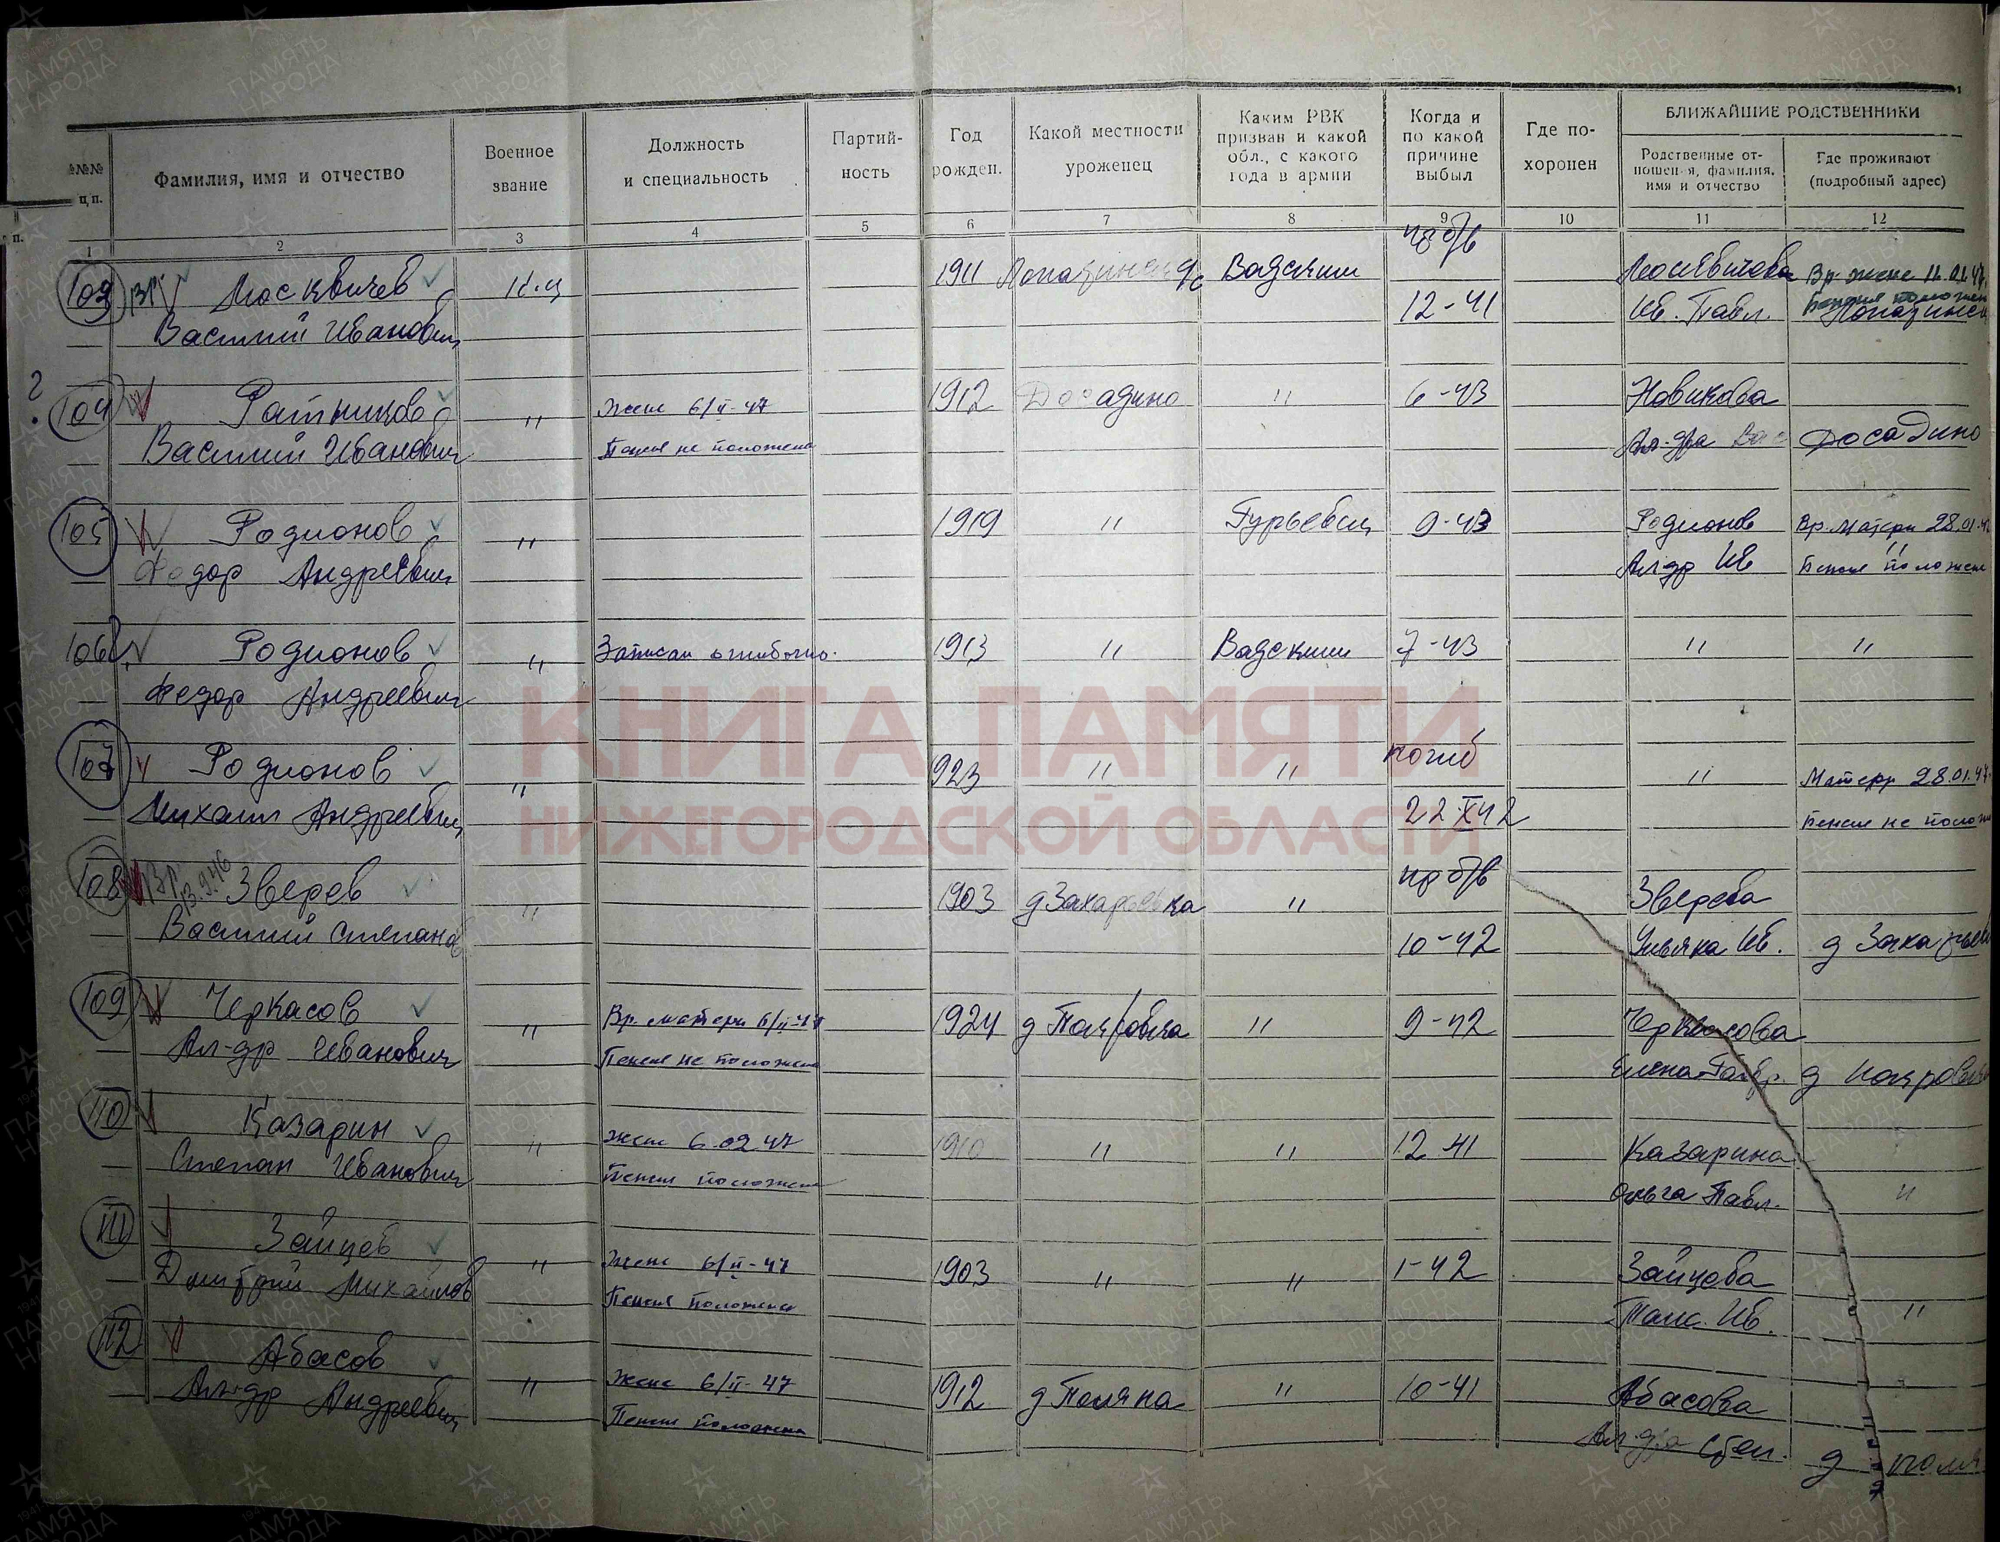 №№№ п.п.
Фамилия, имя и отчество
Военное звание
Должность и специальность
Партий-ность
Год рожден.
Какой местности уроженец
Каким РВК призван и какой обл., с какого года в армии
Когда и по какой причине выбыл
Где по-хоронен
БЛИЖАЙШИЕ РОДСТВЕННИКИ
Родственные от-ношения, фамилия, имя и отчество
Где проживают (подробный адрес)
1 2 3 4 5 6 7 8 9 10 11 12
пр б/в
103 Москвичев 1911 Вадским Вр. жене
Василий Иванович 12-41 Ив. Павл.
104 Ратников " жене 6/II-47 1912 Досадино " 6-43 Новикова
Василий Иванович Пенсия не положена Ал-дра Вас Досадино
105 Родионов " 1919 " Гурьевский 9-43 Родионов Вр. матери 28.01.47
Федор Андреевич Ал-др Ив "
106 Родионов " Записан ошибочно. 1913 " Вадским 7-43 " "
Федор Андреевич
107 Родионов " 1923 " " погиб " Матери 28.01.47.
Михаил Андреевич 22.XI.42
108 Зверев " 1903 д Захарьевка " пр б/в Зверева
Василий Степанов 10-42 Ульяна Ив. д
109 Черкасов " Вр. матери 6/II-47 1924 д " 9-42 Черкасова
Ал-др Иванович Пенсия не положена Елена д
110 Казарин " жене 6.02.47 1910 " " 12-41 Казарина
Степан Иванович Пенсия положена Ольга Павл. "
111 Зайцев " жене 6/II-47 1903 " " 1-42 Зайцева
Дмитрий Михайлов Пенсия положена Ив. "
112 Абасов " жене 6/II-47 1912 д Поляна " 10-41 Абасова
Ал-др Андреевич Пенсия положена Ал-дра Степ. д Поля
КНИГА ПАМЯТИ
НИЖЕГОРОДСКОЙ ОБЛАСТИ
ПАМЯТЬ НАРОДА